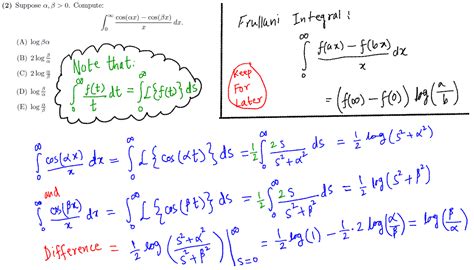 (2) Suppose α, β > 0. Compute:
∫₀^∞ (cos(αx) − cos(βx))/x dx.
(A) log βα
(B) 2 log β/α
(C) 2 log α/β
(D) log β/α
(E) log α/β
Note that:
∫₀^∞ f(t)/t dt = ∫₀^∞ L{f(t)} ds
Frullani Integral:
∫₀^∞ (f(ax) − f(bx))/x dx
= (f(∞) − f(0)) log(a/b)
Keep
For
Later
∫₀^∞ cos(αx)/x dx = ∫₀^∞ L{cos(αt)} ds = 1/2 ∫₀^∞ 2s/(s² + α²) ds = 1/2 log(s² + α²)
and
∫₀^∞ cos(βx)/x dx = ∫₀^∞ L{cos(βt)} ds = 1/2 ∫₀^∞ 2s/(s² + β²) ds = 1/2 log(s² + β²)
Difference = 1/2 log((s² + α²)/(s² + β²)) |_{s=0}^∞ = 1/2 log(1) − 1/2 · 2 log(α/β) = log(β/α)